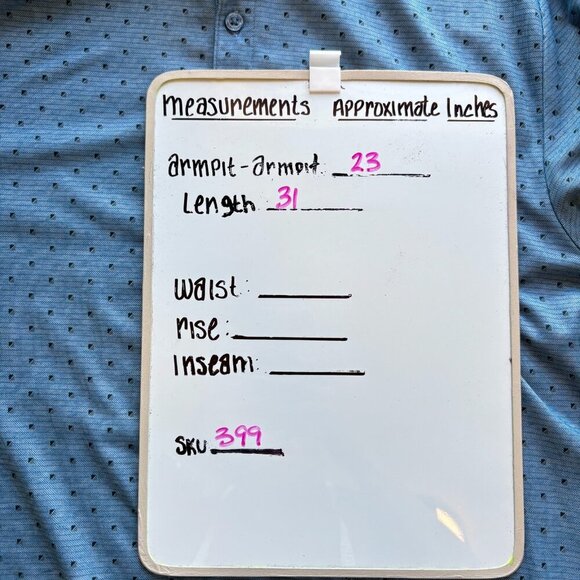 Measurements Approximate Inches
armpit-armpit: 23
Length: 31
Waist:
rise:
Inseam:
SKU 399